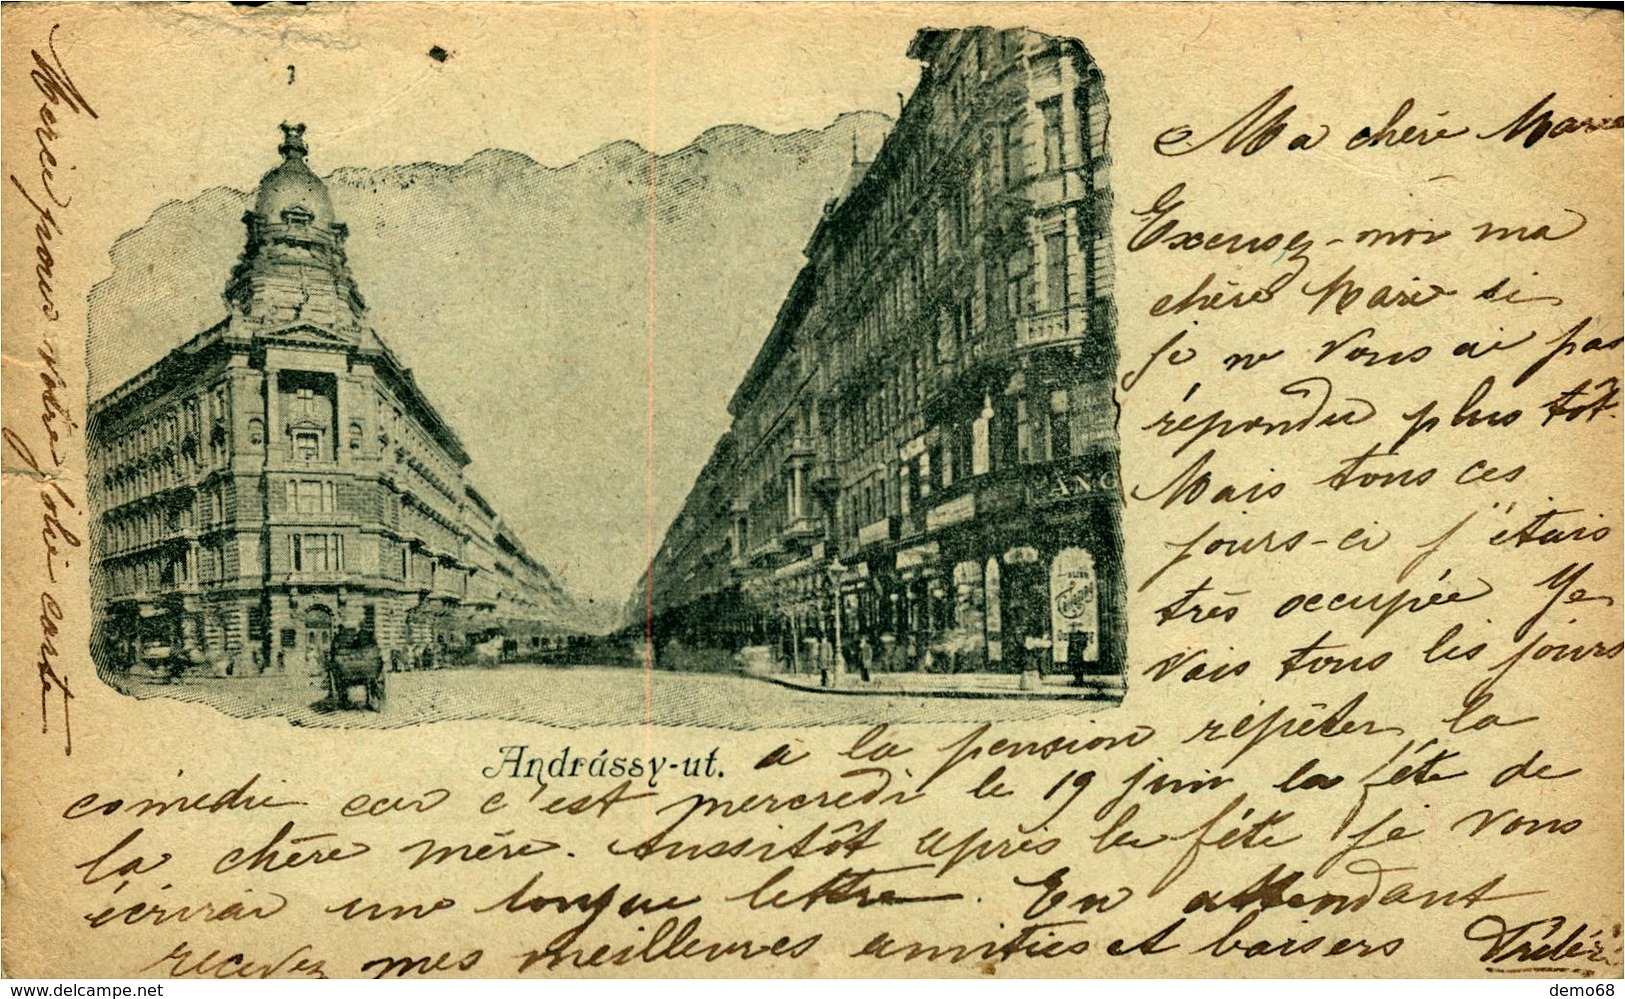 Ma chère Marie
Excusez-moi ma
chère Marie si
je ne vous ai pas
répondu plus tôt.
Mais tous ces
jours-ci j'étais
très occupée Je
vais tous les jours
à la pension répéter la
comédie car c'est mercredi le 19 juin la fête de
la chère mère. Aussitôt après la fête je vous
écrirai une longue lettre. En attendant
recevez mes meilleures amitiés et baisers
Merci pour votre jolie carte
Andrássy-ut.
www.delcampe.net
demo68